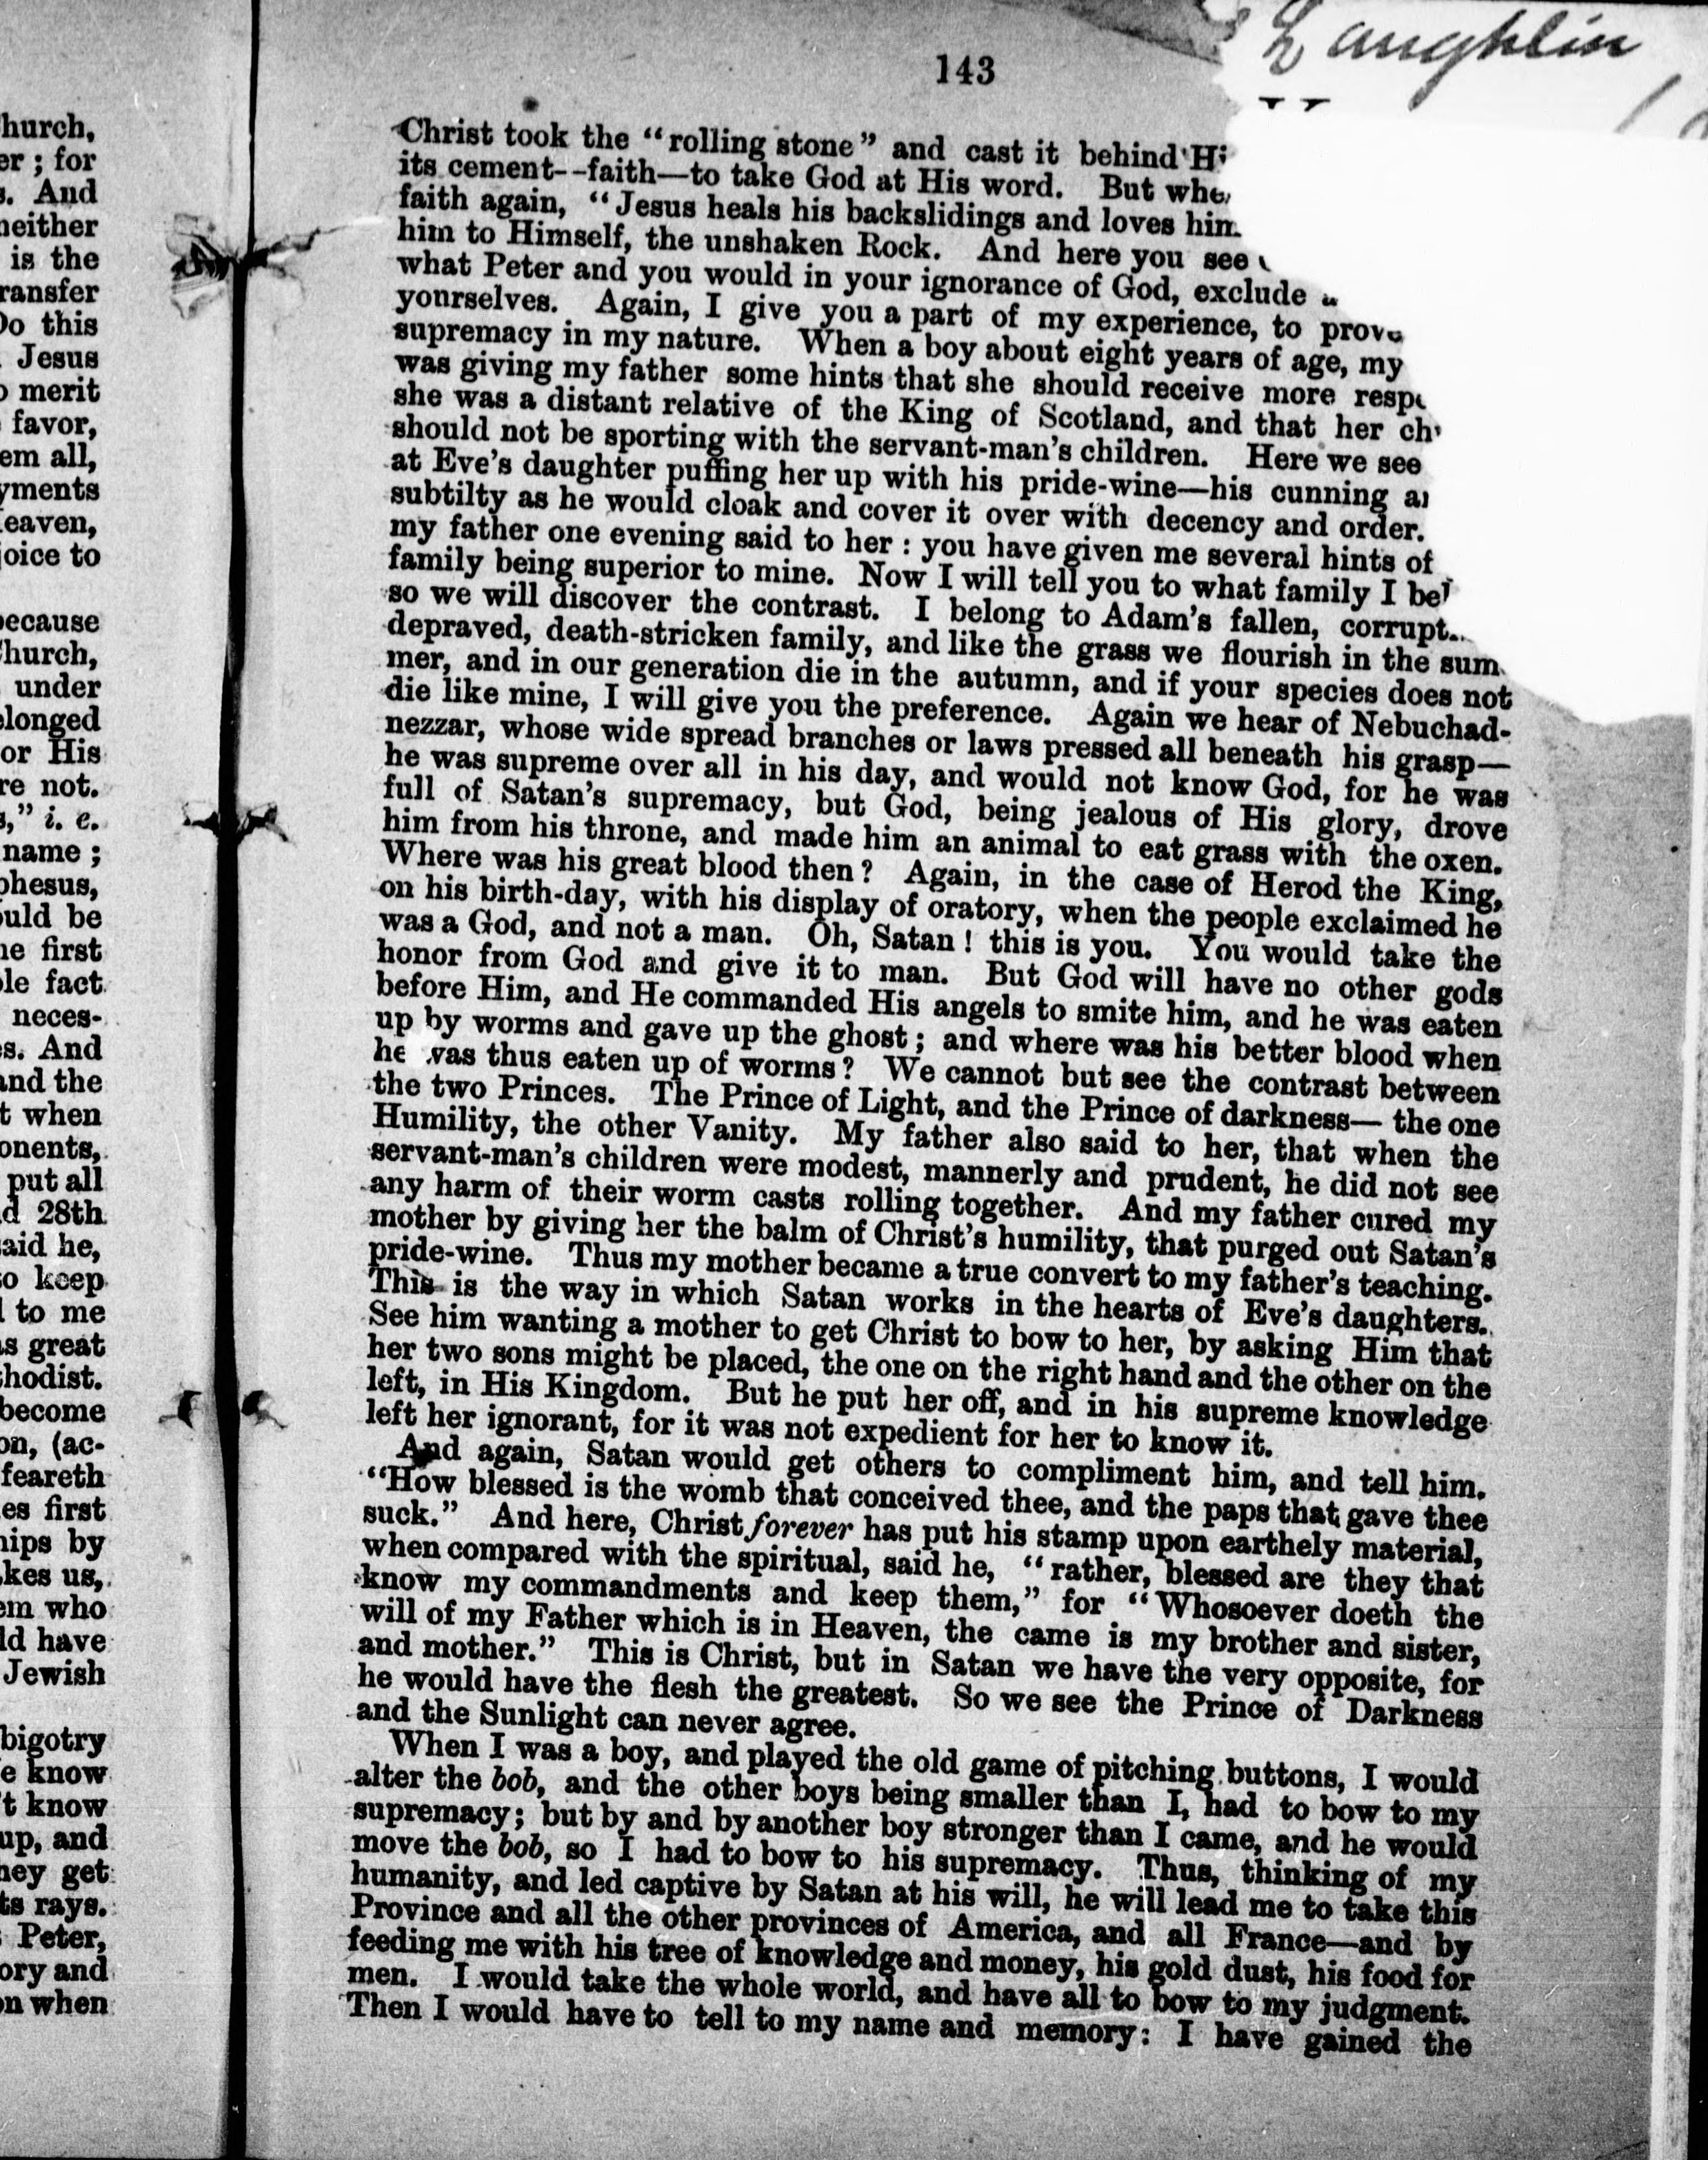 hurch,
er ; for
s. And
neither
is the
ransfer
Do this
Jesus
o merit
favor,
em all,
yments
eaven,
joice to
because
hurch,
under
elonged
or His
re not.
s,” i. e.
name ;
phesus,
ould be
he first
ple fact
neces-
s. And
and the
t when
onents,
put all
d 28th
said he,
so keep
l to me
as great
thodist.
become
on, (ac-
feareth
es first
hips by
kes us,
em who
ld have
Jewish
bigotry
e know
't know
up, and
hey get
ts rays.
Peter,
ory and
on when
Laughlin
143
Christ took the “rolling stone” and cast it behind
its cement--faith—to take God at His word. But
faith again, “Jesus heals his backslidings and loves
him to Himself, the unshaken Rock. And here you see
what Peter and you would in your ignorance of God, exclude
yourselves. Again, I give you a part of my experience, to
supremacy in my nature. When a boy about eight years of age, my
was giving my father some hints that she should receive more
she was a distant relative of the King of Scotland, and that her
should not be sporting with the servant-man's children. Here we see
at Eve's daughter puffing her up with his pride-wine—his cunning
subtilty as he would cloak and cover it over with decency and order.
my father one evening said to her : you have given me several hints of
family being superior to mine. Now I will tell you to what family I
so we will discover the contrast. I belong to Adam's fallen, corrupt
depraved, death-stricken family, and like the grass we flourish in the sum
mer, and in our generation die in the autumn, and if your species does not
die like mine, I will give you the preference. Again we hear of Nebuchad-
nezzar, whose wide spread branches or laws pressed all beneath his grasp—
he was supreme over all in his day, and would not know God, for he was
full of Satan's supremacy, but God, being jealous of His glory, drove
him from his throne, and made him an animal to eat grass with the oxen.
Where was his great blood then? Again, in the case of Herod the King,
on his birth-day, with his display of oratory, when the people exclaimed he
was a God, and not a man. Oh, Satan! this is you. You would take the
honor from God and give it to man. But God will have no other gods
before Him, and He commanded His angels to smite him, and he was eaten
up by worms and gave up the ghost; and where was his better blood when
he was thus eaten up of worms? We cannot but see the contrast between
the two Princes. The Prince of Light, and the Prince of darkness— the one
Humility, the other Vanity. My father also said to her, that when the
servant-man's children were modest, mannerly and prudent, he did not see
any harm of their worm casts rolling together. And my father cured my
mother by giving her the balm of Christ's humility, that purged out Satan's
pride-wine. Thus my mother became a true convert to my father's teaching.
This is the way in which Satan works in the hearts of Eve's daughters.
See him wanting a mother to get Christ to bow to her, by asking Him that
her two sons might be placed, the one on the right hand and the other on the
left, in His Kingdom. But he put her off, and in his supreme knowledge
left her ignorant, for it was not expedient for her to know it.
And again, Satan would get others to compliment him, and tell him.
“How blessed is the womb that conceived thee, and the paps that gave thee
suck.” And here, Christ forever has put his stamp upon earthely material,
when compared with the spiritual, said he, “rather, blessed are they that
know my commandments and keep them,” for “Whosoever doeth the
will of my Father which is in Heaven, the came is my brother and sister,
and mother.” This is Christ, but in Satan we have the very opposite, for
he would have the flesh the greatest. So we see the Prince of Darkness
and the Sunlight can never agree.
When I was a boy, and played the old game of pitching buttons, I would
alter the bob, and the other boys being smaller than I, had to bow to my
supremacy; but by and by another boy stronger than I came, and he would
move the bob, so I had to bow to his supremacy. Thus, thinking of my
humanity, and led captive by Satan at his will, he will lead me to take this
Province and all the other provinces of America, and all France—and by
feeding me with his tree of knowledge and money, his gold dust, his food for
men. I would take the whole world, and have all to bow to my judgment.
Then I would have to tell to my name and memory: I have gained the